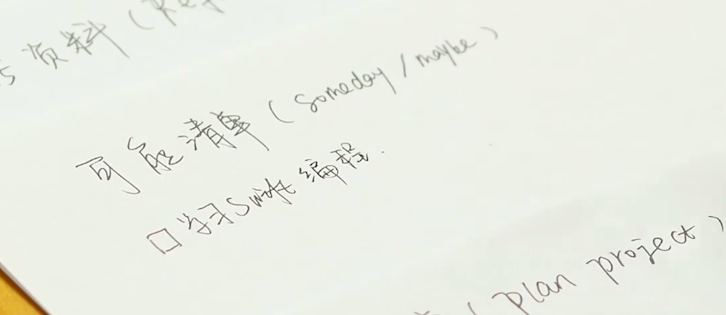 资料(
可能清单(someday/maybe)
□学习Swift编程.
(plan project)